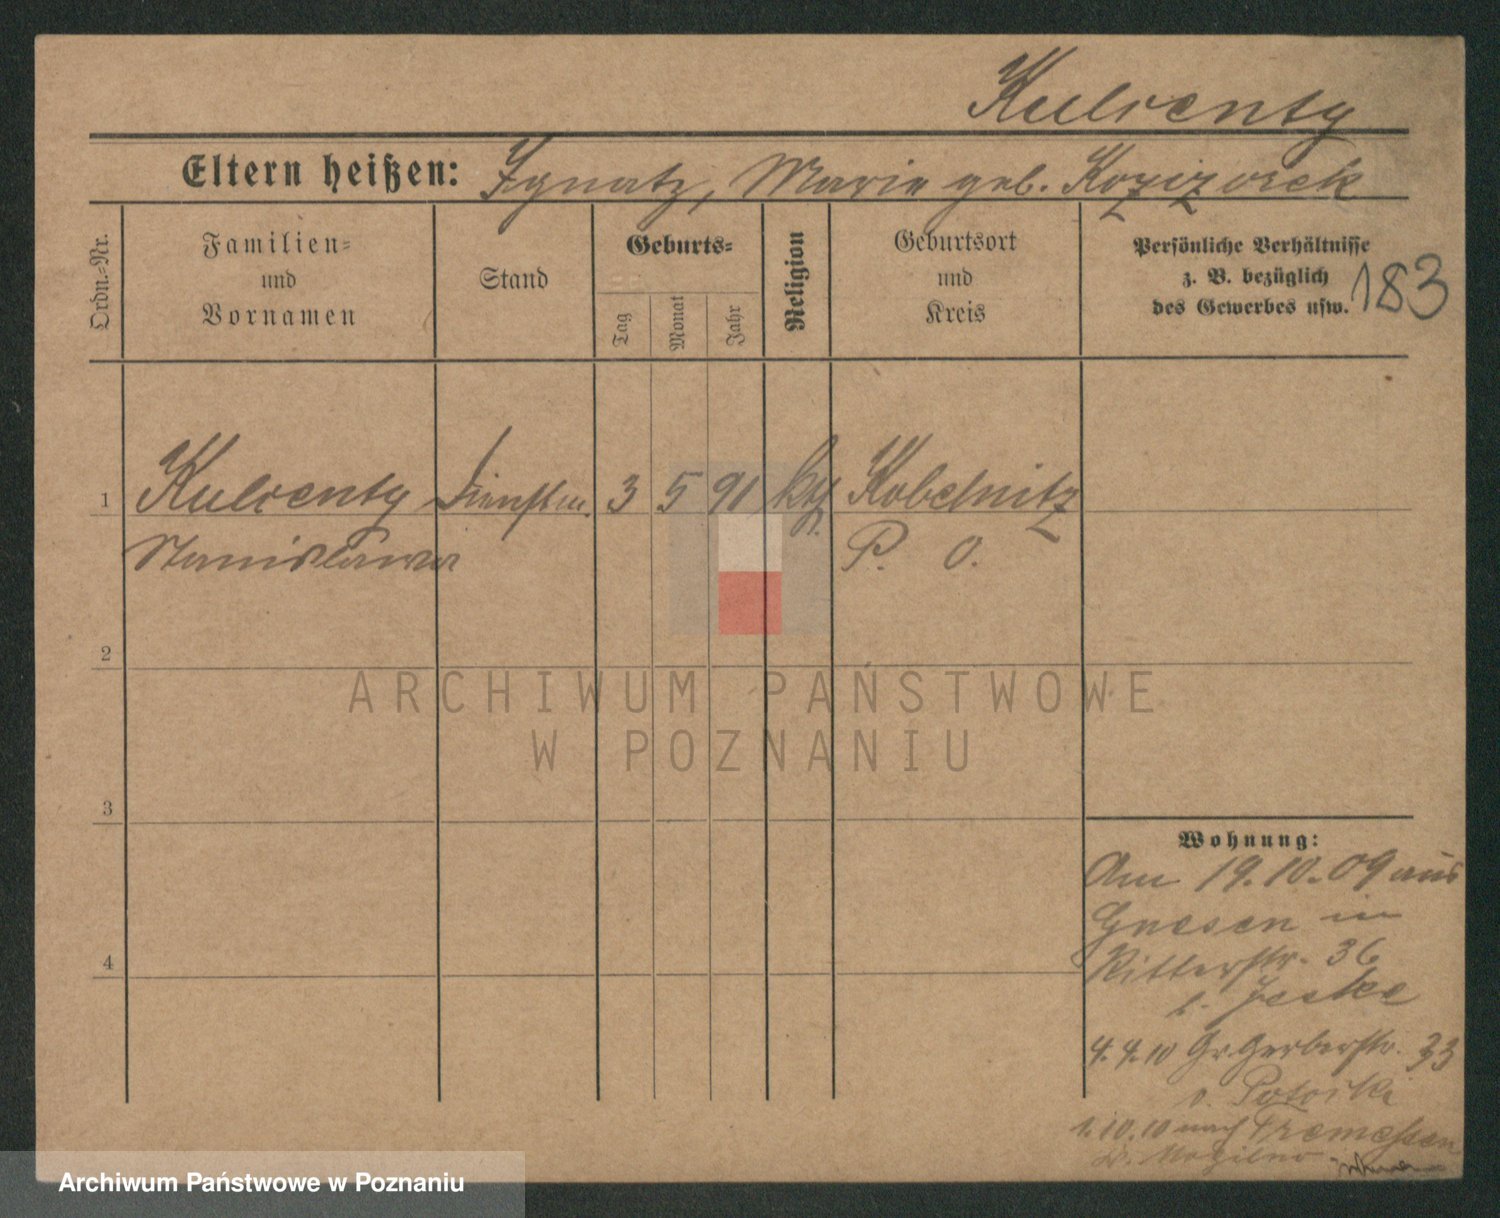 Kulcenty
Eltern heißen: Ignatz, Marie geb.
Ordn.-Nr.
Familien-
und
Vornamen
Stand
Geburts-
Tag
Monat
Jahr
Religion
Geburtsort
und
Kreis
Persönliche Verhältnisse
z. B. bezüglich
des Gewerbes usw.
183
1 Kulcenty Dienstm. 3 5 91 kth. Kobelnitz
Stanislawa P. O.
2
3
4
Wohnung:
Am 19.10.09 aus
Gnesen in
Ritterstr. 36
b. Jeske
4.4.10 Gr. Gerberstr. 33
b. Potocki
1.10.10 nach Tremessen
Kr. Mogilno
ARCHIWUM PAŃSTWOWE
W POZNANIU
Archiwum Państwowe w Poznaniu